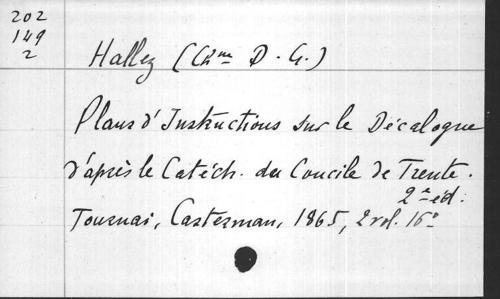 202
149
2
Hallez (Chne D. G.)
Plans d'Instructions sur le Décalogue
d'après le Catéch. du Concile de Trente.
2e éd.
Tournai, Casterman, 1865, 2 vol. 16°